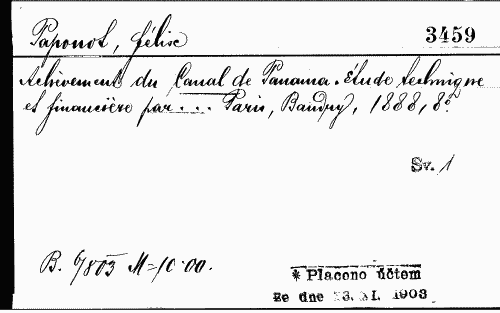 Paponot, Félix
3459
Achèvement du Canal de Panama. Étude technique
et financière par... Paris, Baudry, 1888, 8°.
Sv. 1
B. 6/803 M=10·00.
* Placeno účtem
ze dne I. 1903